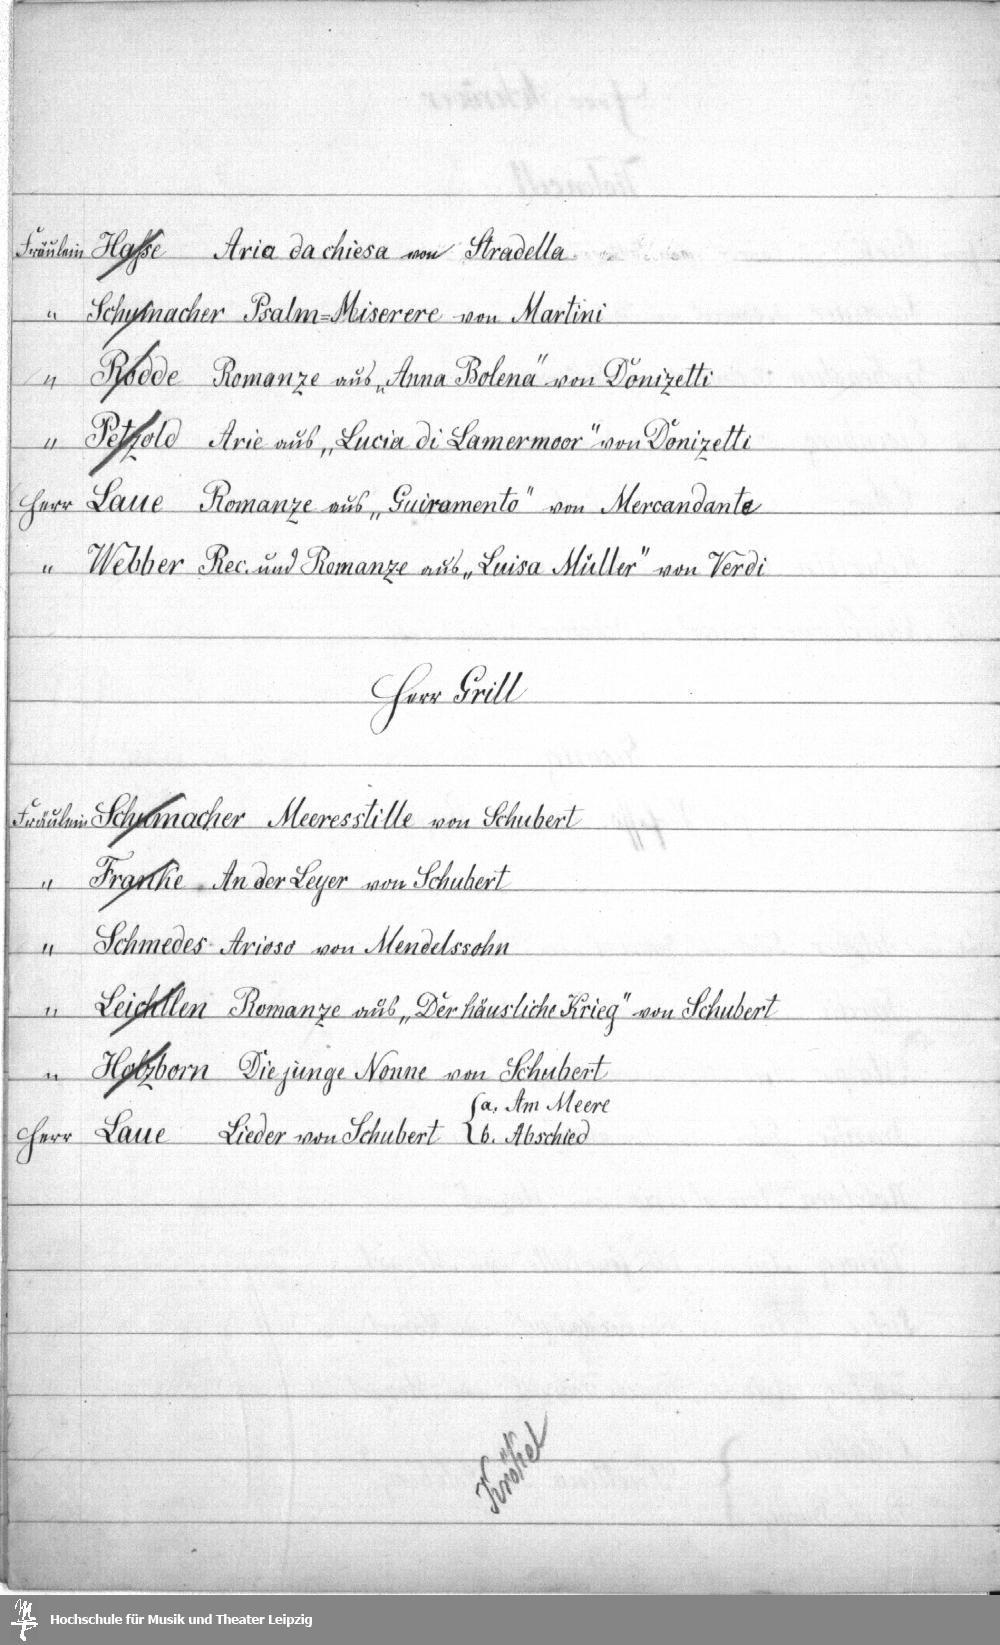 Fräulein Hasse Aria da chiesa von Stradella
" Schumacher Psalm=Miserere von Martini
" Rodde Romanze aus „Anna Bolena" von Donizetti
" Petzold Arie aus „Lucia di Lamermoor" von Donizetti
Herr Laue Romanze aus „Guiramento" von Mercandante
" Webber Rec. und Romanze aus „Luisa Müller" von Verdi
Herr Grill
Fräulein Schumacher Meeresstille von Schubert
" Franke An der Leyer von Schubert
" Schmedes Arioso von Mendelssohn
" Leichtlen Romanze aus „Der häusliche Krieg" von Schubert
" Holzborn Die junge Nonne von Schubert
{a. Am Meere
Herr Laue Lieder von Schubert {b. Abschied
Krökel
Hochschule für Musik und Theater Leipzig